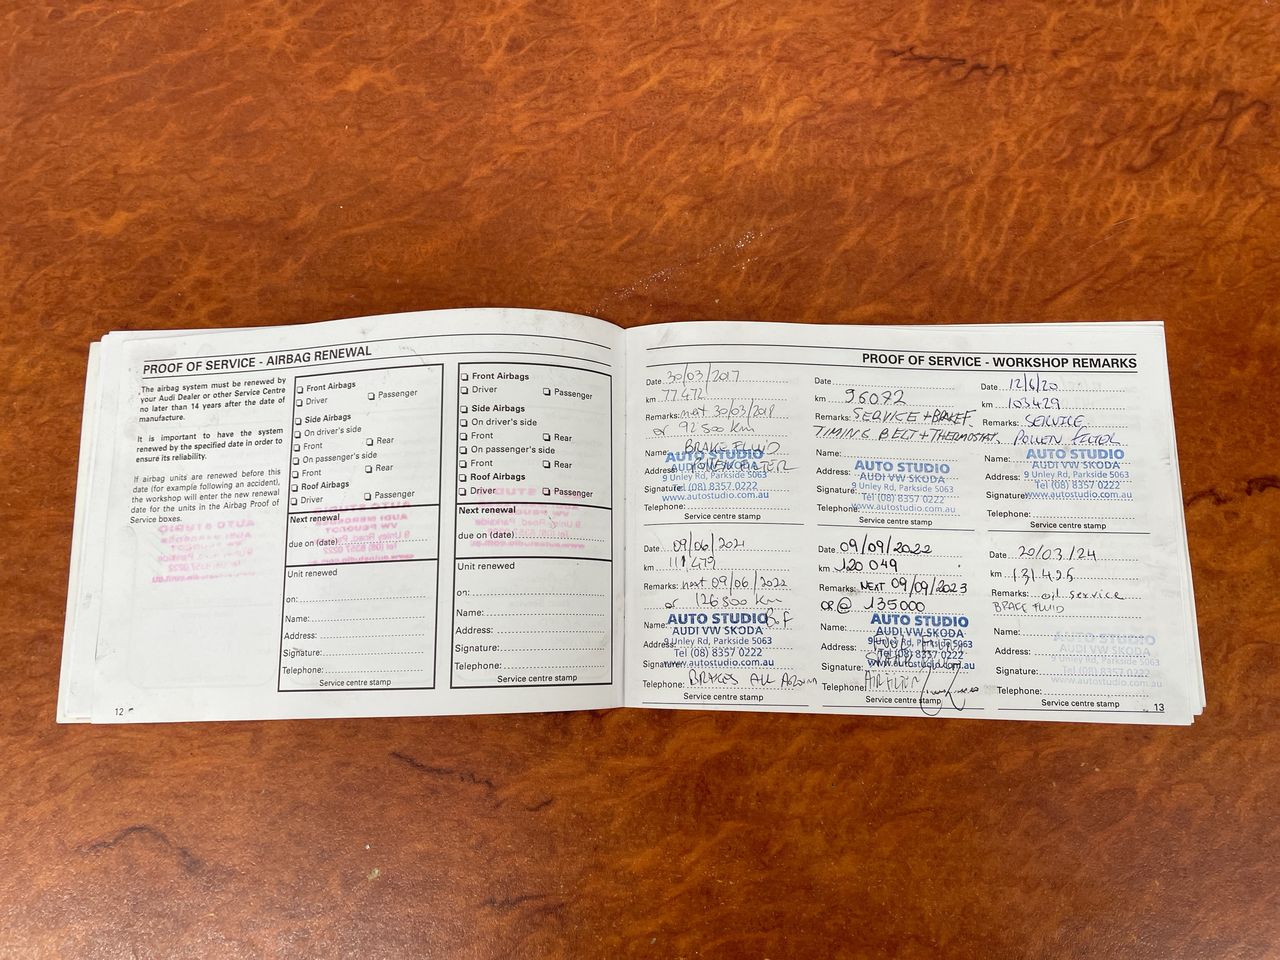 PROOF OF SERVICE - AIRBAG RENEWAL
The airbag system must be renewed by
your Audi Dealer or other Service Centre
no later than 14 years after the date of
manufacture.
It is important to have the system
renewed by the specified date in order to
ensure its reliability.
If airbag units are renewed before this
date (for example following an accident),
the workshop will enter the new renewal
date for the units in the Airbag Proof of
Service boxes.
Front Airbags
Driver Passenger
Side Airbags
On driver's side
Front Rear
On passenger's side
Front Rear
Roof Airbags
Driver Passenger
Next renewal
due on (date)
Unit renewed
on:
Name:
Address:
Signature:
Telephone:
Service centre stamp
Front Airbags
Driver Passenger
Side Airbags
On driver's side
Front Rear
On passenger's side
Front Rear
Roof Airbags
Driver Passenger
Next renewal
due on (date)
Unit renewed
on:
Name:
Address:
Signature:
Telephone:
Service centre stamp
12
PROOF OF SERVICE - WORKSHOP REMARKS
Date 30/03/2017
km 77472
Remarks: next 30/03/2018
or 92500 km
Name: BRAKE FLUID
AUTO STUDIO
AUDI VW SKODA
Address: POLLEN FILTER
9 Unley Rd, Parkside 5063
Signature: Tel (08) 8357 0222
www.autostudio.com.au
Service centre stamp
Date
km 96072
Remarks: SERVICE + BRAKE F.
TIMING BELT + THERMOSTAT.
Name:
AUTO STUDIO
Address: AUDI VW SKODA
9 Unley Rd, Parkside 5063
Signature: Tel (08) 8357 0222
www.autostudio.com.au
Service centre stamp
Date 12/6/20
km 103429
Remarks: SERVICE
POLLEN FILTER
Name: AUTO STUDIO
AUDI VW SKODA
Address: 9 Unley Rd, Parkside 5063
Tel (08) 8357 0222
Signature: www.autostudio.com.au
Service centre stamp
Date 09/06/2021
km 111479
Remarks: next 09/06/2022
or 126500 km
Name: AUTO STUDIO B.F
AUDI VW SKODA
Address: 9 Unley Rd, Parkside 5063
Tel (08) 8357 0222
Signature: www.autostudio.com.au
Telephone: BRAKES ALL AROUN
Service centre stamp
Date 09/09/2022
km 120 049
Remarks: NEXT 09/09/2023
OR @ 135000
Name: AUTO STUDIO
AUDI VW SKODA
Address: 9 Unley Rd, Parkside 5063
Tel (08) 8357 0222
Signature: www.autostudio.com.au
Telephone: AIR FILTER
Service centre stamp
Date 20/03/24
km 131.425
Remarks: oil service
BRAKE FLUID
Name: AUTO STUDIO
AUDI VW SKODA
Address: 9 Unley Rd, Parkside 5063
Tel (08) 8357 0222
Signature: www.autostudio.com.au
Telephone:
Service centre stamp
13